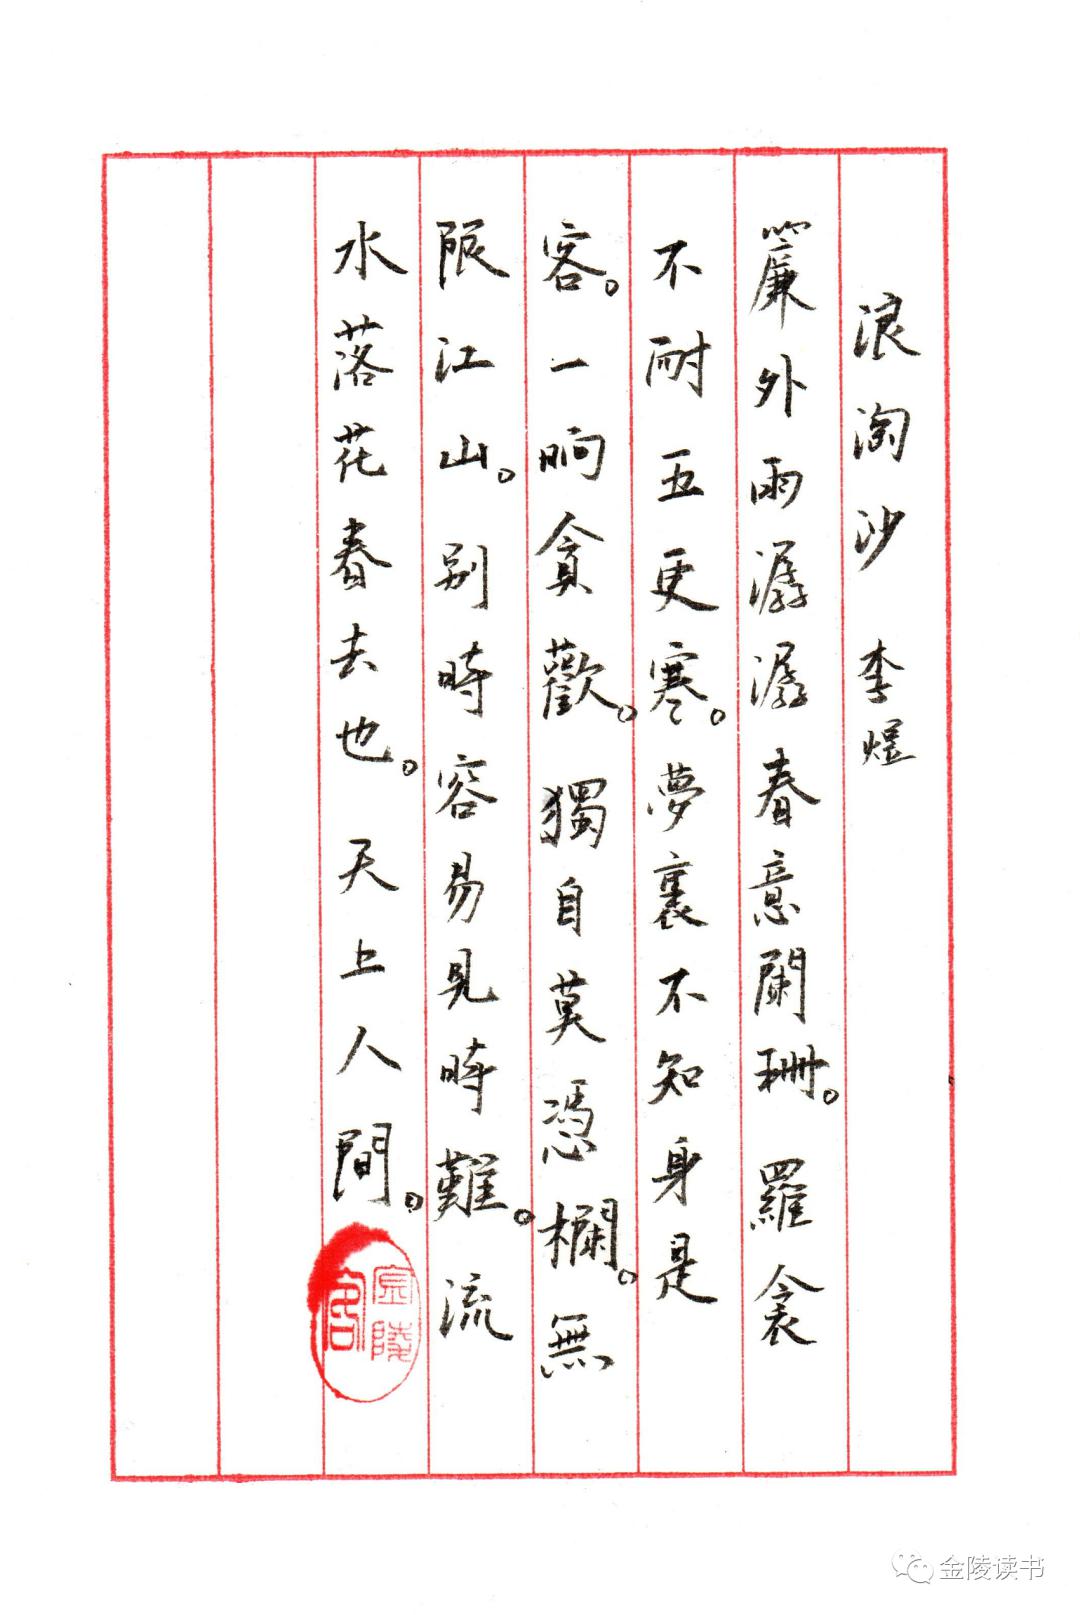 浪淘沙 李煜
簾外雨潺潺春意闌珊。羅衾
不耐五更寒。夢裏不知身是
客。一晌貪歡。獨自莫憑欄。無
限江山。別時容易見時難。流
水落花春去也。天上人間。
金陵客
金陵读书